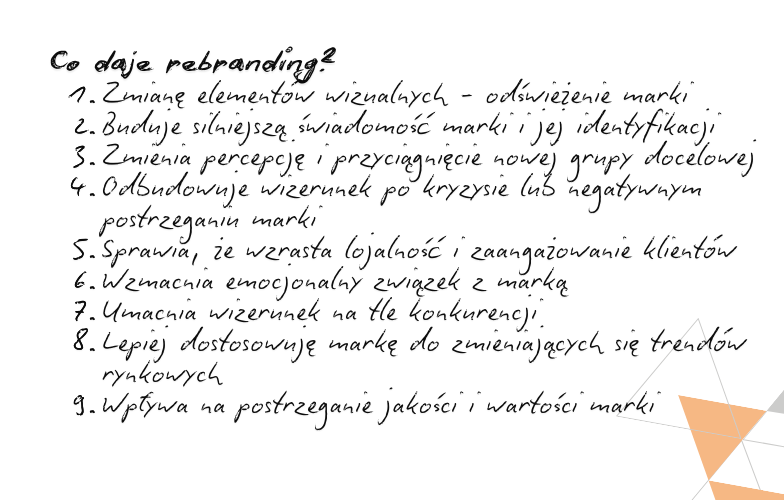 Co daje rebranding?
1. Zmianę elementów wizualnych - odświeżenie marki
2. Buduje silniejszą świadomość marki i jej identyfikacji
3. Zmienia percepcję i przyciągnięcie nowej grupy docelowej
4. Odbudowuje wizerunek po kryzysie lub negatywnym
postrzeganiu marki
5. Sprawia, że wzrasta lojalność i zaangażowanie klientów
6. Wzmacnia emocjonalny związek z marką
7. Umacnia wizerunek na tle konkurencji
8. Lepiej dostosowuję markę do zmieniających się trendów
rynkowych
9. Wpływa na postrzeganie jakości i wartości marki